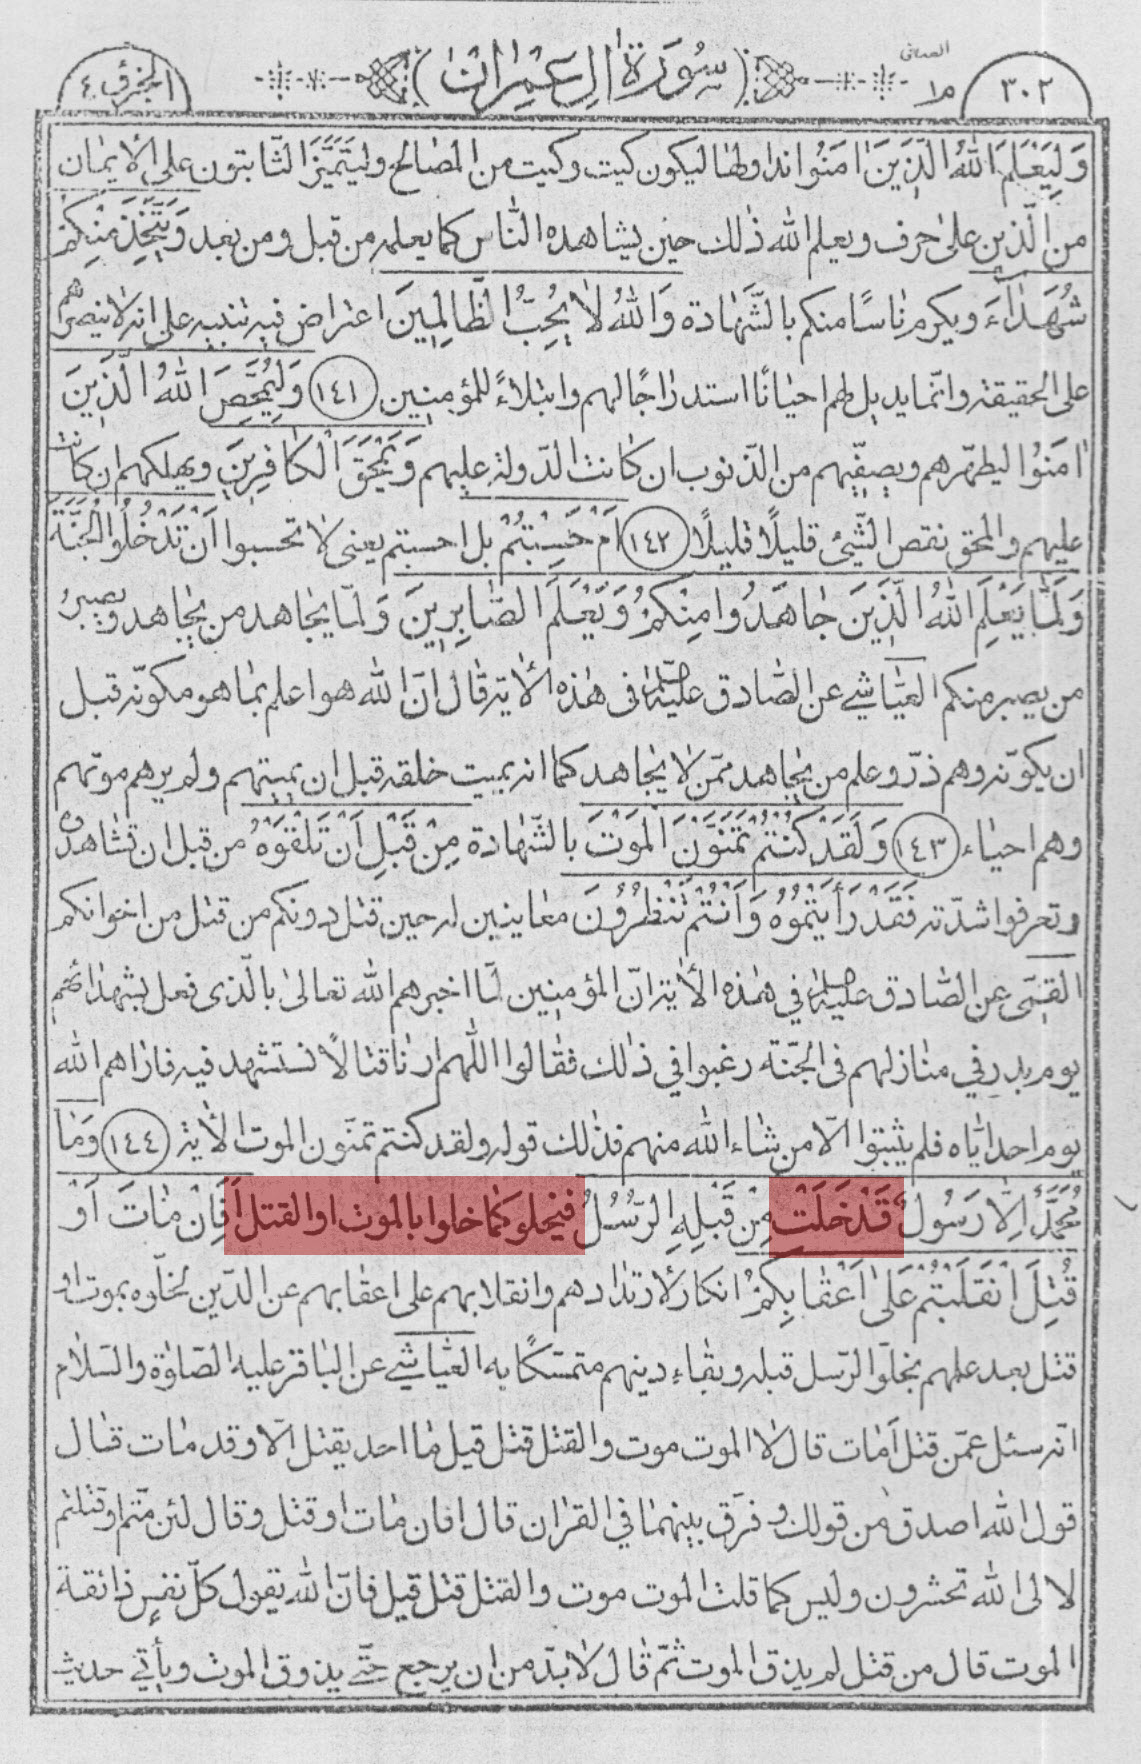 ٣٠٢ الصافى م١ (سُورَةُ الِ عِمْرانَ) الجزء ٤
وَلِيَعْلَمَ اللهُ الَّذِينَ اٰمَنُوا نداولها ليكون كيت وكيت من المصالح وليتميّز الثّابتون على الأيمان
من الّذين على حرف ويعلم الله ذلك حين يشاهده النّاس كما يعلمه من قبل ومن بعد وَيَتَّخِذَ مِنْكُمْ
شُهَدٰاءَ ويكرم ناسًا منكم بالشّهادة وَاللهُ لاٰ يُحِبُّ الظّٰالِمِينَ اعتراض فيه تنبيه على انه لا ينصرهم
على الحقيقة وانّما يديل لهم احيانًا استدراجًا لهم وابتلاءً للمؤمنين (١٤١) وَلِيُمَحِّصَ اللهُ الَّذِينَ
اٰمَنُوا ليطهّرهم ويصفّيهم من الذّنوب ان كانت الدّولة عليهم وَيَمْحَقَ الْكٰافِرِينَ ويهلكهم ان كانت
عليهم والمحق نقص الشّىء قليلًا قليلًا (١٤٢) اَمْ حَسِبْتُمْ بل احسبتم يعنى لا تحسبوا اَنْ تَدْخُلُوا الْجَنَّةَ
وَلَمّٰا يَعْلَمِ اللهُ الَّذِينَ جٰاهَدُوا مِنْكُمْ وَيَعْلَمَ الصّٰابِرِينَ ولمّا يجاهد من يجاهد ويصبر
من يصبر منكم العيّاشي عن الصّادق عليه السلام فى هذه الأية قال انّ الله هو اعلم بما هو مكوّنه قبل
ان يكوّنه وهم ذرّ وعلم من يجاهد ممّن لا يجاهد كما انه يميت خلقه قبل ان يميتهم ولم يرهم موتهم
وهم احياء (١٤٣) وَلَقَدْ كُنْتُمْ تَمَنَّوْنَ الْمَوْتَ بالشّهادة مِنْ قَبْلِ اَنْ تَلْقَوْهُ من قبل ان تشاهدوه
وتعرفوا شدّته فَقَدْ رَأَيْتُمُوهُ وَاَنْتُمْ تَنْظُرُونَ معاينين له حين قتل دونكم من قتل من اخوانكم
القمّى عن الصّادق عليه السلام في هذه الأية انّ المؤمنين لمّا اخبرهم الله تعالى بالّذى فعل بشهدائهم
يوم بدر في منازلهم فى الجنّة رغبوا في ذلك فقالوا اللّهم ارنا قتالًا نستشهد فيه فاراهم الله
يوم احد ايّاه فلم يثبتوا الّا من شاء الله منهم فذلك قوله ولقد كنتم تمنّون الموت الأية (١٤٤) وَمٰا
مُحَمَّدٌ اِلّٰا رَسُولٌ قَدْ خَلَتْ مِنْ قَبْلِهِ الرُّسُلُ فيخلو كما خلوا بالموت او القتل اَفَاِنْ مٰاتَ اَوْ
قُتِلَ انْقَلَبْتُمْ عَلىٰ اَعْقٰابِكُمْ انكار لارتدادهم وانقلابهم على اعقابهم عن الدّين لخلوّه بموت او
قتل بعد علمهم بخلوّ الرّسل قبله وبقاء دينهم متمسّكًا به العيّاشي عن الباقر عليه الصّلوة والسّلام
انّه سئل عمّن قتل اَمات قال لا الموت موت والقتل قتل قيل ما احد يقتل الّا وقد مات قال
قول الله اصدق من قولك فرّق بينهما في القران قال افان مات او قتل وقال لئن متّم او قتلتم
لالى الله تحشرون وليس كما قلت الموت موت والقتل قتل قيل فانّ الله يقول كلّ نفس ذائقة
الموت قال من قتل لم يذق الموت ثمّ قال لا بدّ من ان يرجع حتّى يذوق الموت ويأتي حديث